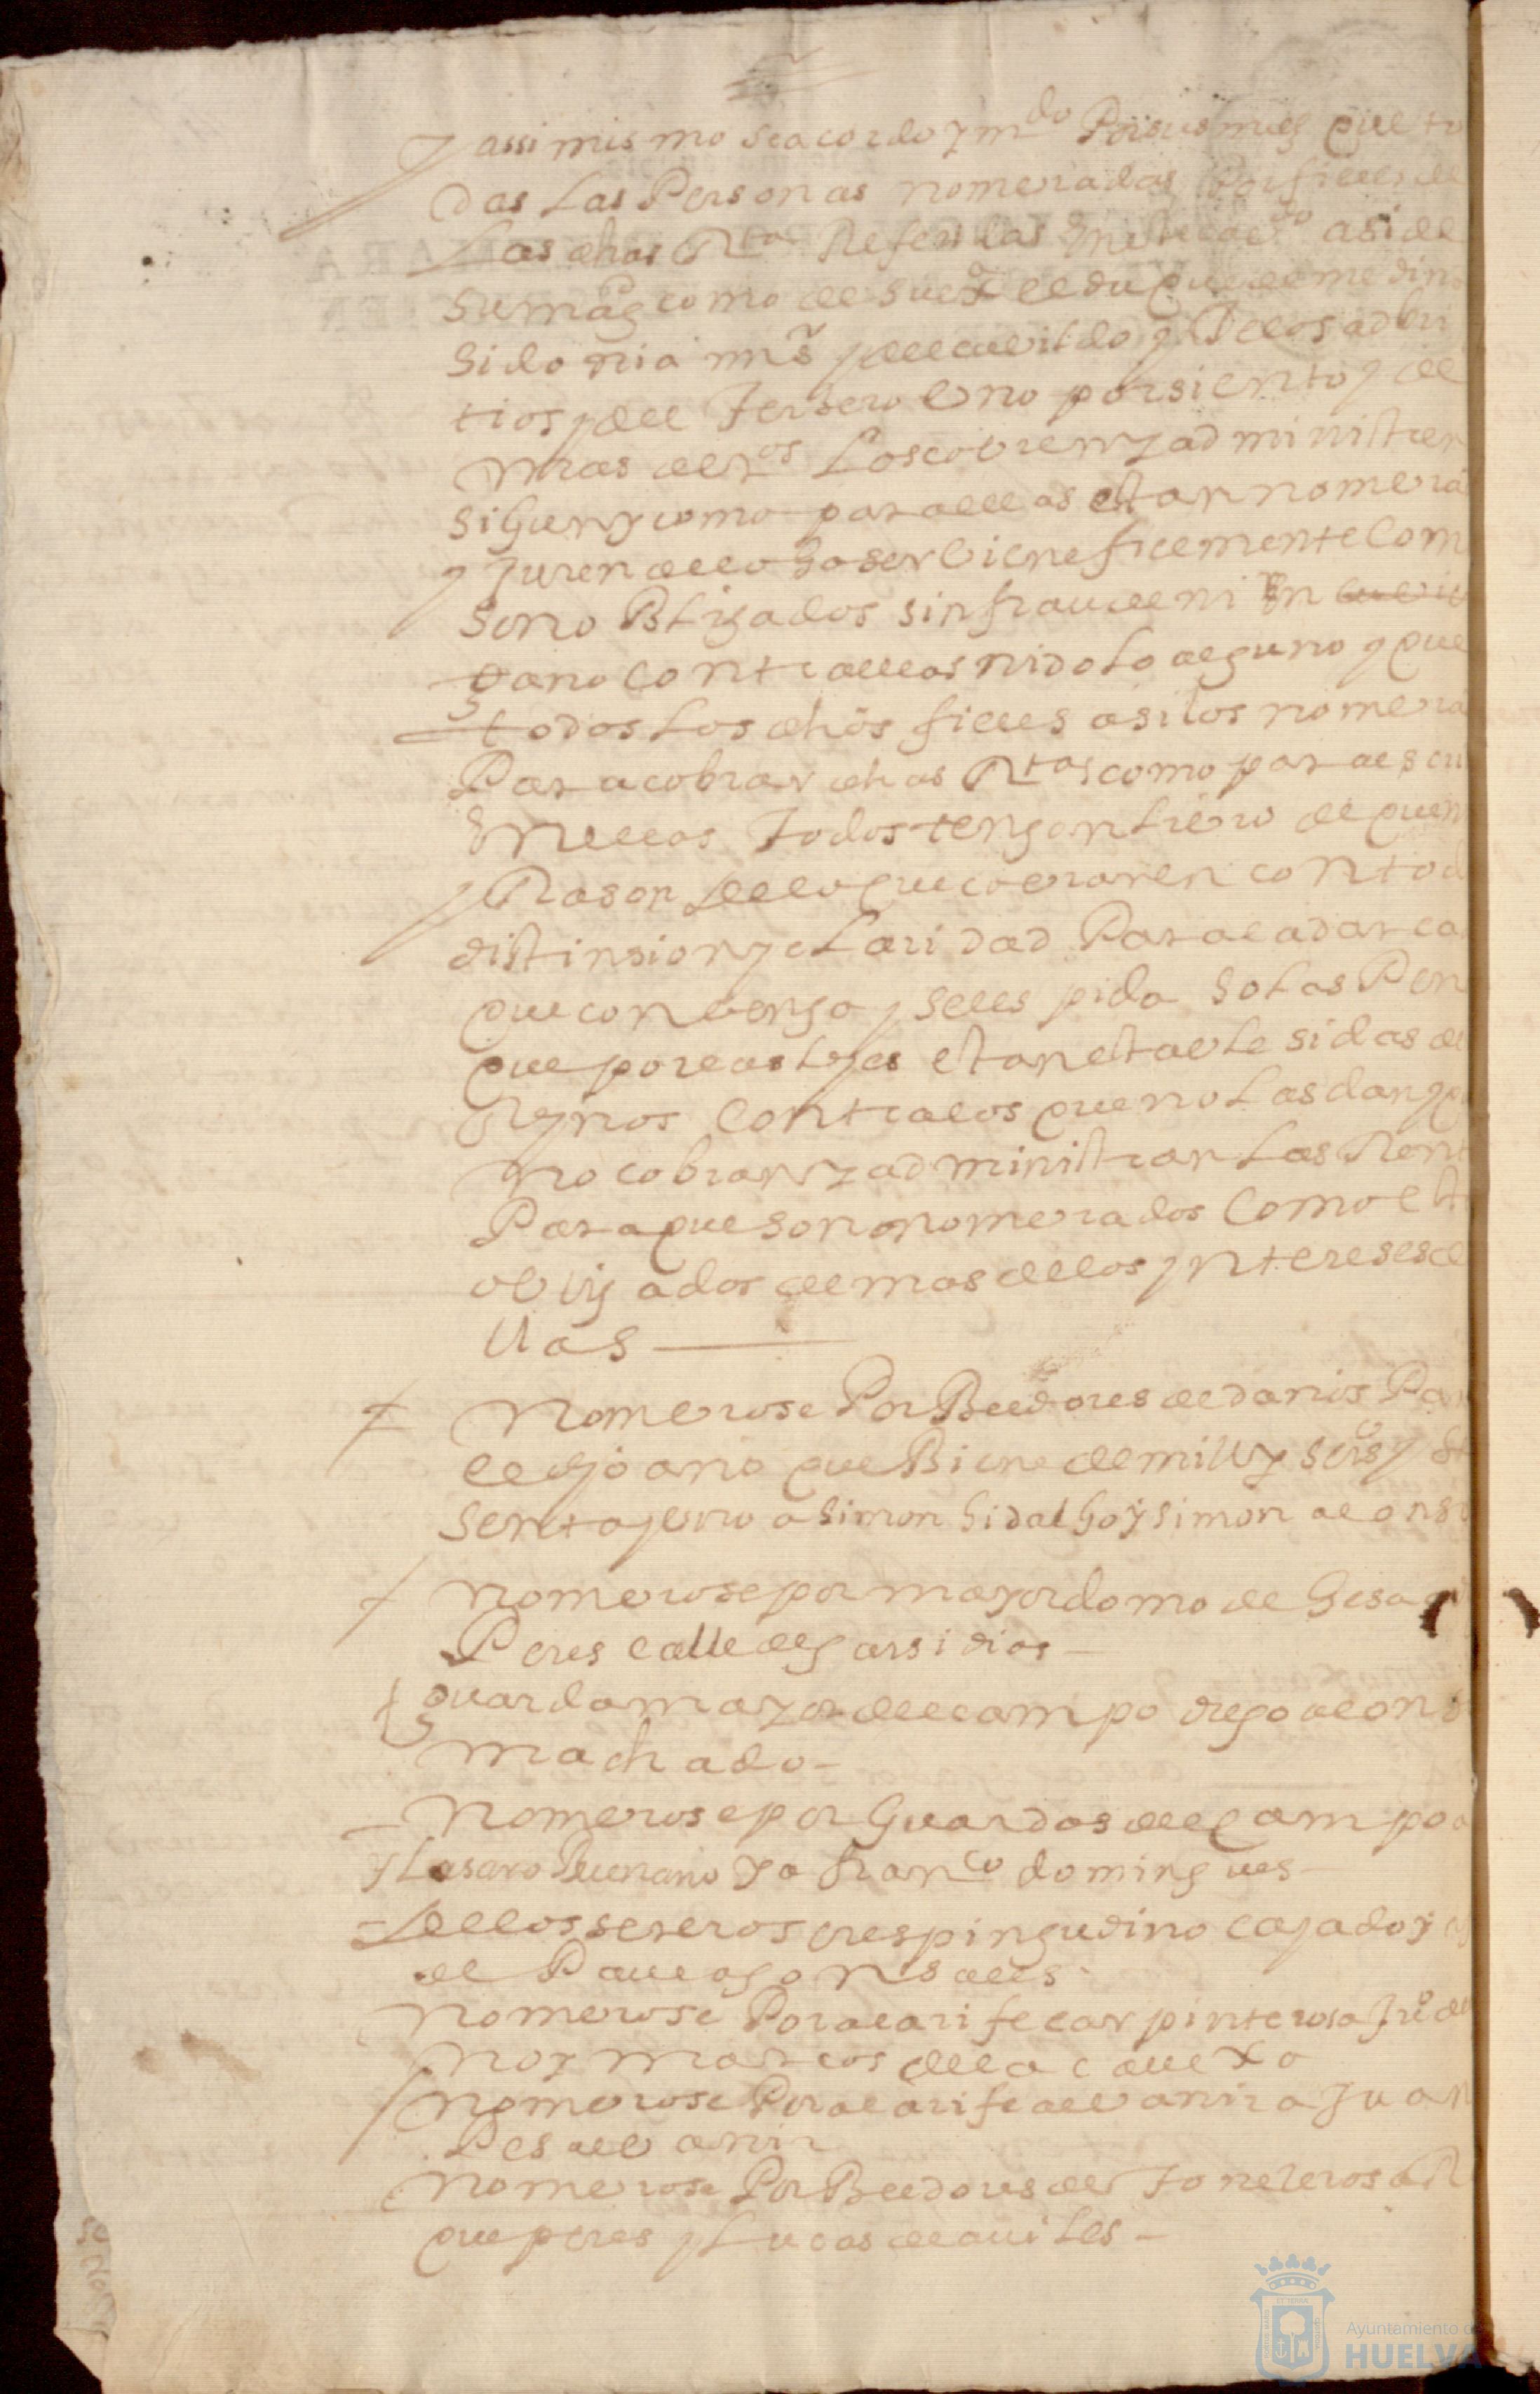 y assi mismo se acordo y m^do Por sus m^es que to
das las Personas nombradas Por fieles de
Las dhas R^tas asi de
su mag como de su ex^a el duque de medin
sidonia mi s^r y del cabildo y de los adbi
trios y del terSero Uno por siento y de
mas der^os Los cobren y administren
sigun y como para ellas estan nombra
y Juren de lo haser bien e fielmente Com
son oBligados sin fraude ni En
gano contra ellas ni dolo alguno y que
todos los dhos fieles asi los nombra
Para cobrar dhas R^tas como para escri
En ellas todos tengan libro de quen
y Rason de lo que cobraren con tod
distinsion y claridad Para la dar ca
que conbenga y se les pida so las Pen
que por las leyes estan establesidas de
Reynos contra los que no las dan y
no cobran y administran las Ren
Para que son nombrados Como est
obligados demas de los yntereses de
llas
Nombrose Por Beedores de danos Par
el dho ano que Biene de mill y seis y se
senta y uno a simon hidalgo y simon alonso
nombrose por mayordomo de
Peres calle de garsi dias
guarda mayor del campo diego alons
machado
Nombrose por Guardas del campo a
y Lasaro y a fran^co domingues
de los seseros crespin gudino casado y
de Paula gonsales
nombrose Por alarife carpintero a Ju^o de
no y marcos de la
nombrose Por alarife albanir a Juan
Pes albanir
nombrose Por Beedores de toneleros a R
que peres y Lucas de aviles
Ayuntamiento d
HUELVA